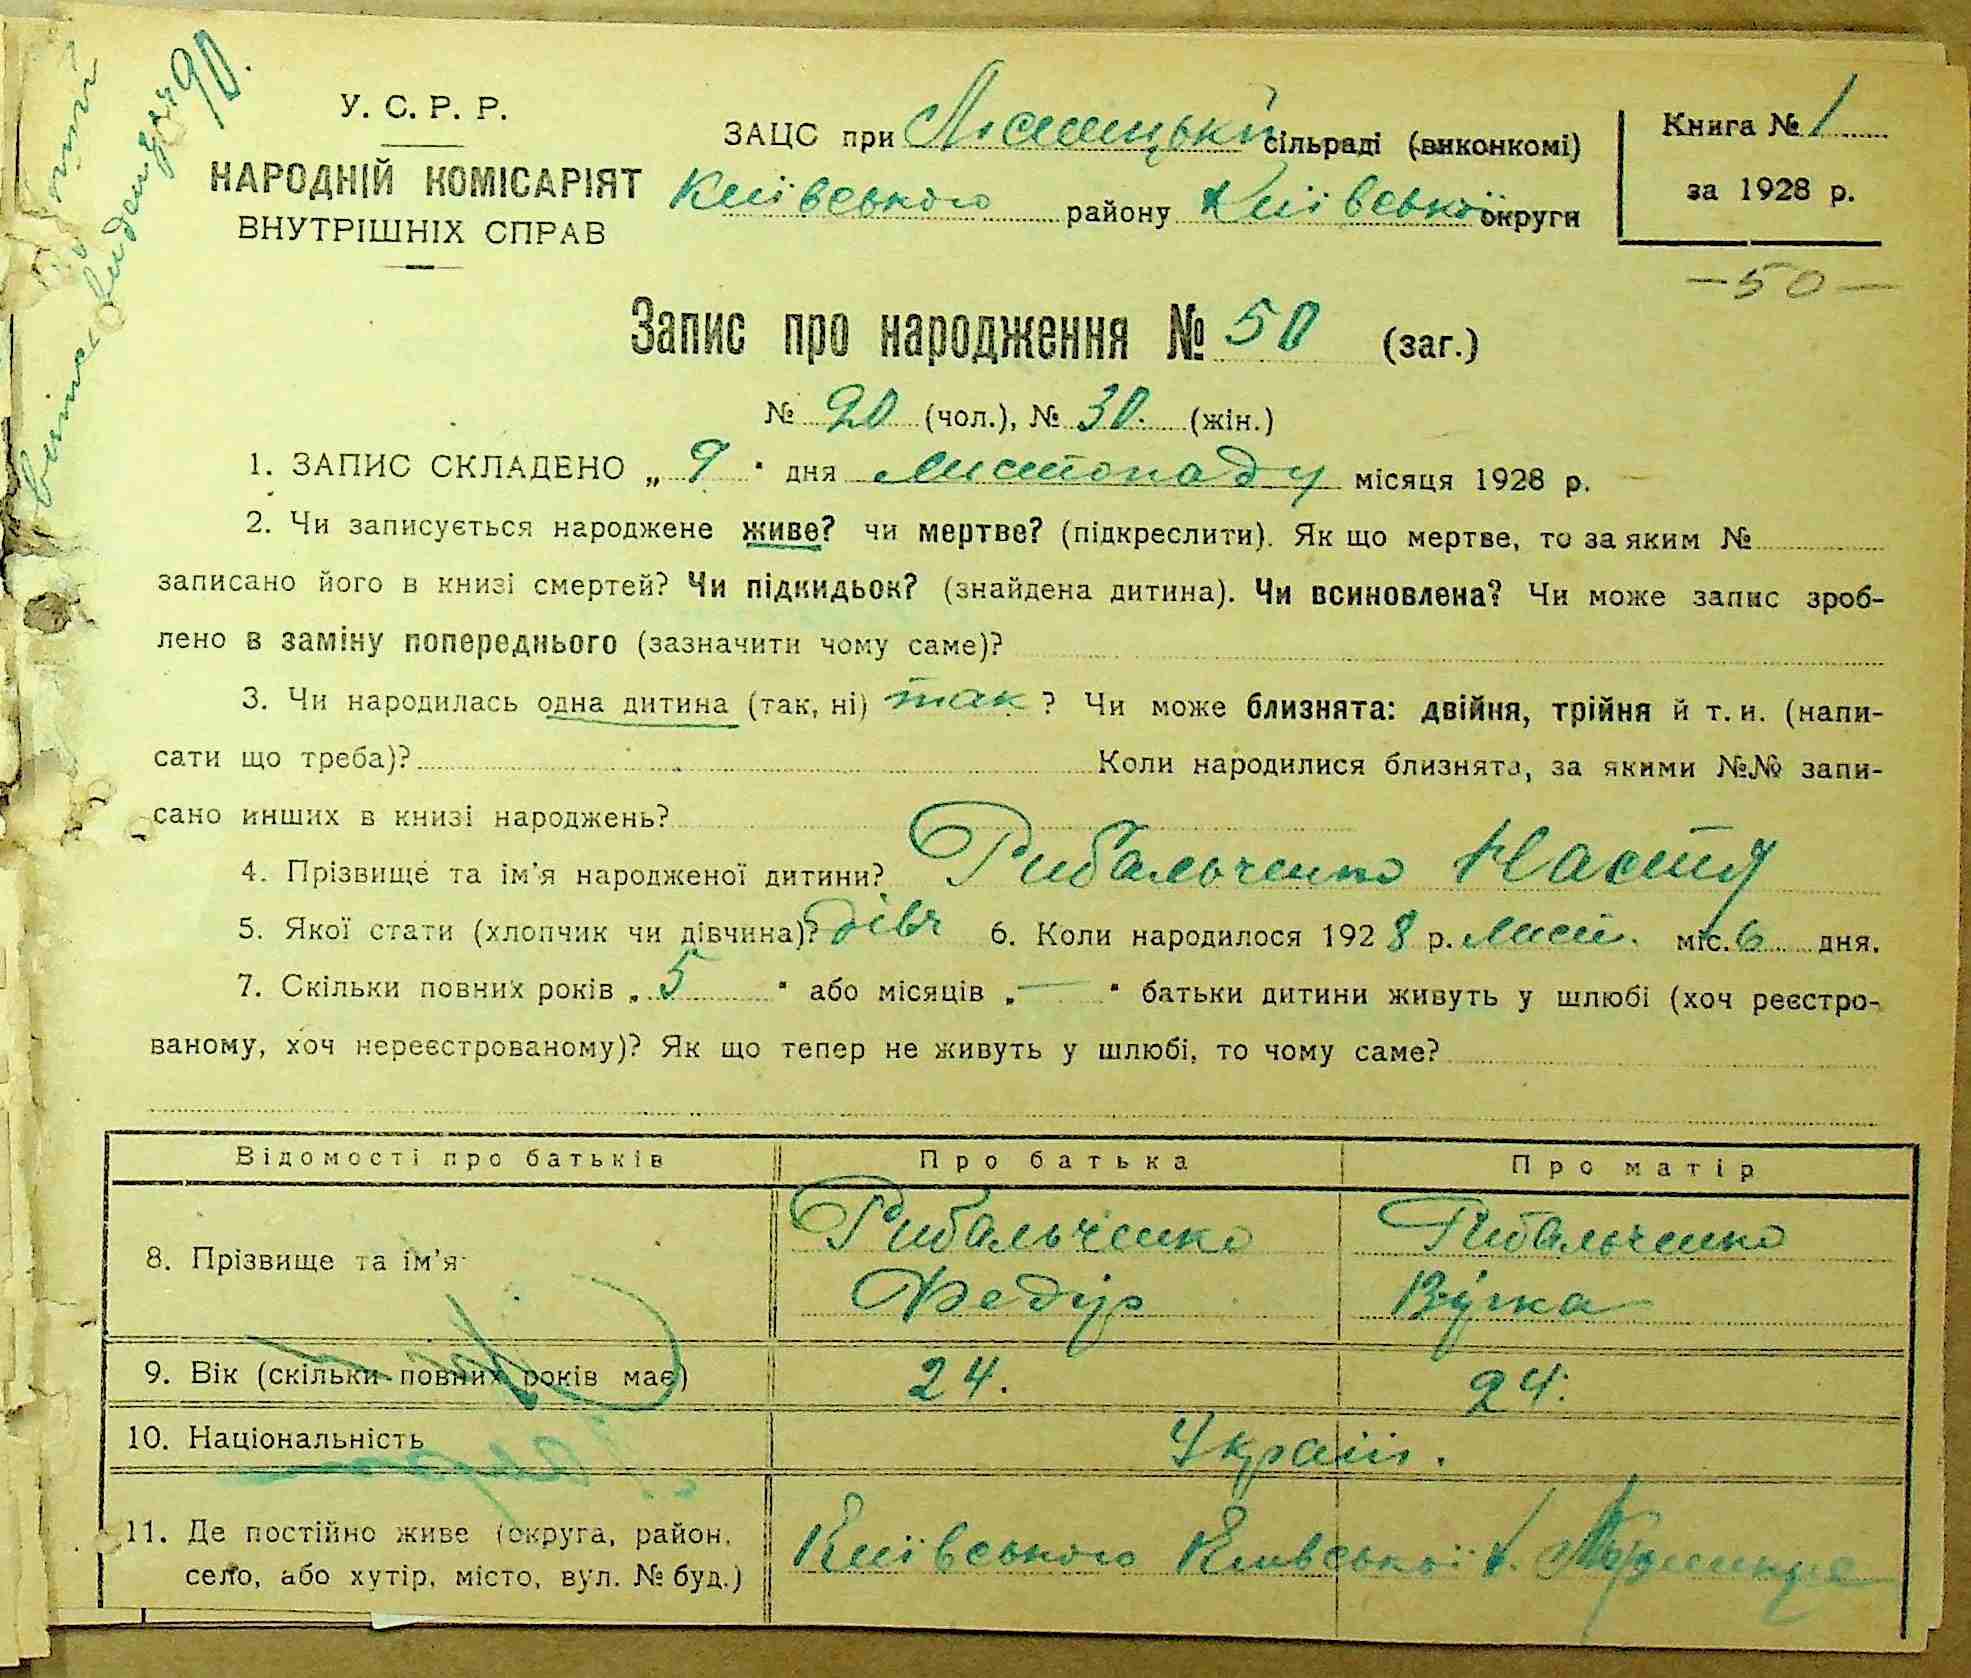 90.
У. С. Р. Р.
НАРОДНІЙ КОМІСАРІЯТ
ВНУТРІШНІХ СПРАВ
ЗАЦС при сільраді (виконкомі)
Київського району Київської округи
Книга № 1
за 1928 р.
— 50 —
Запис про народження № 50 (заг.)
№ 20 (чол.), № 30. (жін.)
1. ЗАПИС СКЛАДЕНО „ 9 " дня листопаду місяця 1928 р.
2. Чи записується народжене живе? чи мертве? (підкреслити). Як що мертве, то за яким №
записано його в книзі смертей? Чи підкидьок? (знайдена дитина). Чи всиновлена? Чи може запис зроб-
лено в заміну попереднього (зазначити чому саме)?
3. Чи народилась одна дитина (так, ні) так ? Чи може близнята: двійня, трійня й т. и. (напи-
сати що треба)? Коли народилися близнята, за якими №№ запи-
сано инших в книзі народжень?
4. Прізвище та ім'я народженої дитини? Рибальченко Настя
5. Якої стати (хлопчик чи дівчина)? дівч 6. Коли народилося 1928 р. лист. міс. 6 дня.
7. Скільки повних років „ 5 " або місяців „ — " батьки дитини живуть у шлюбі (хоч реєстро-
ваному, хоч нереєстрованому)? Як що тепер не живуть у шлюбі, то чому саме?
Відомості про батьків Про батька Про матір
8. Прізвище та ім'я Рибальченко Рибальченко
Федір
9. Вік (скільки повних років має) 24. 24.
10. Національність Україн.
11. Де постійно живе (округа, район,
село, або хутір, місто, вул. № буд.) Київського Київської